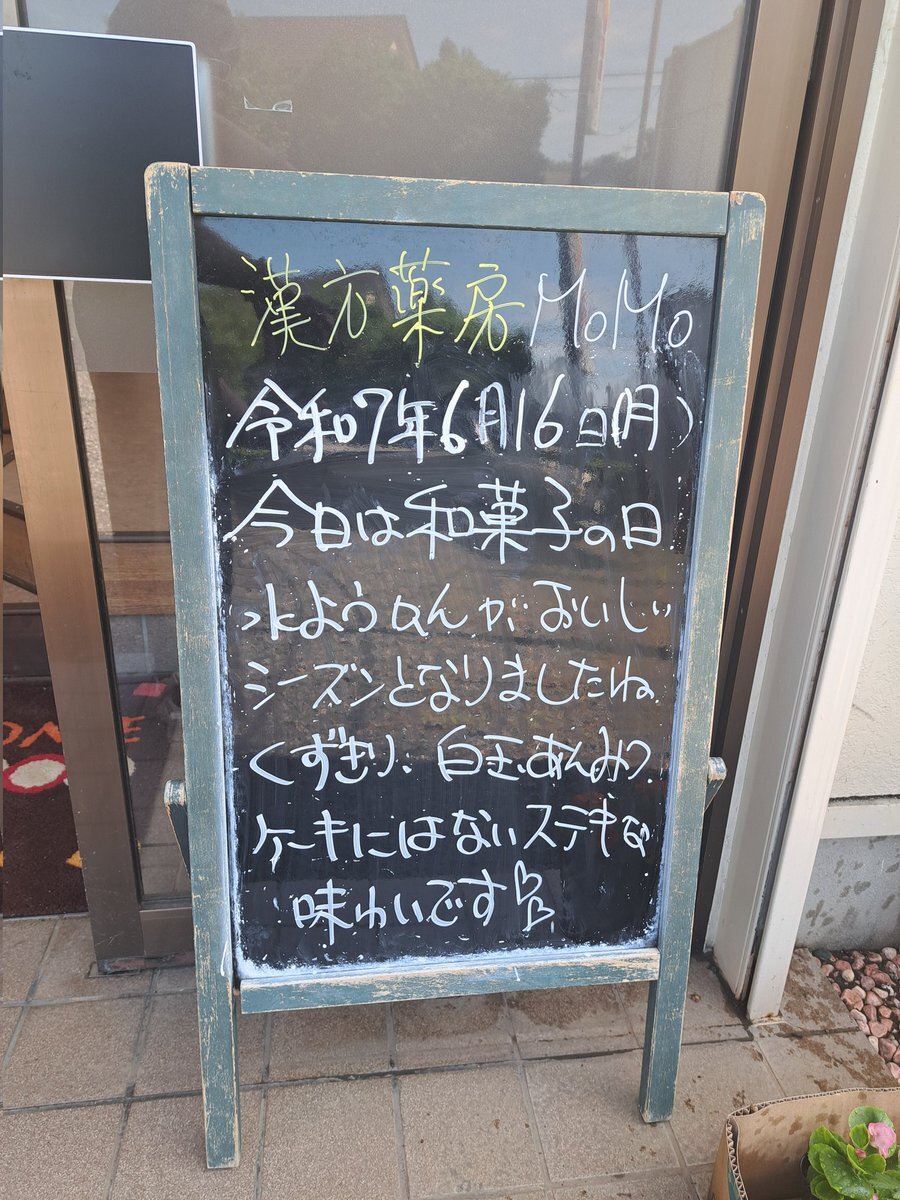 漢方薬房MoMo
令和7年6月16日(月)
今日は和菓子の日
水ようかんがおいしい
シーズンとなりましたね
くずきり、白玉、あんみつ
ケーキにはないステキな
味わいです